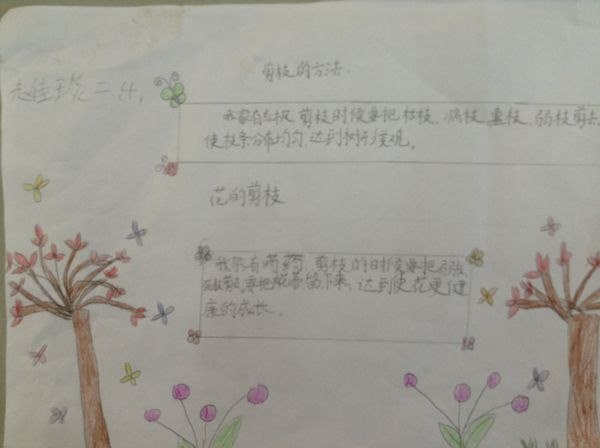 剪枝的方法
二4
我家有 剪枝时候要把枯枝、病枝、重枝、弱枝剪去
使枝条分布均匀,达到树形美观。
花的剪枝
我家有芍药,剪枝的时候要把弱
要把 留下来,达到使花更健
康的成长。